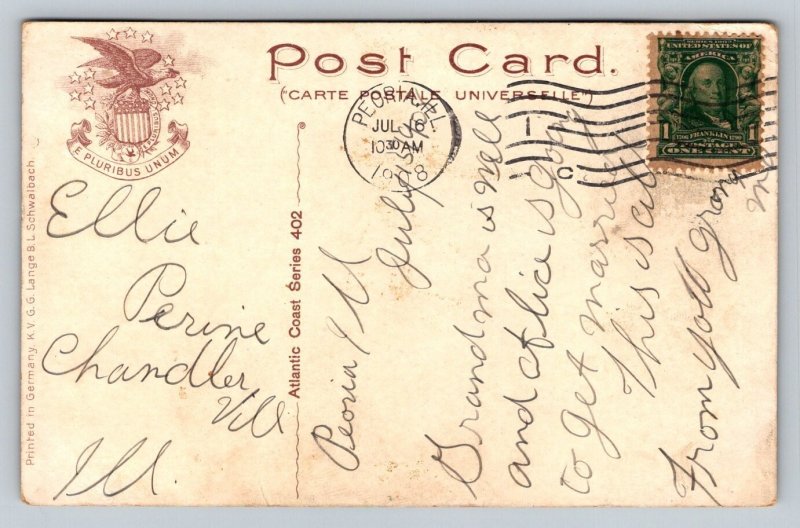 Post Card.
("CARTE POSTALE UNIVERSELLE")
E PLURIBUS UNUM
PEORIA, ILL.
JUL 16
10 30 AM
1908
UNITED STATES OF AMERICA
1 FRANKLIN 1
POSTAGE
ONE CENT
Printed in Germany. K.V.G.G. Lange B.L. Schwalbach.
Atlantic Coast Series 402
Ellie
Perine
Chandler
Vill
Ill.
Peoria Ill
July
Grandma is well
and Alice is going
to get married
This is all
From your grand
ma